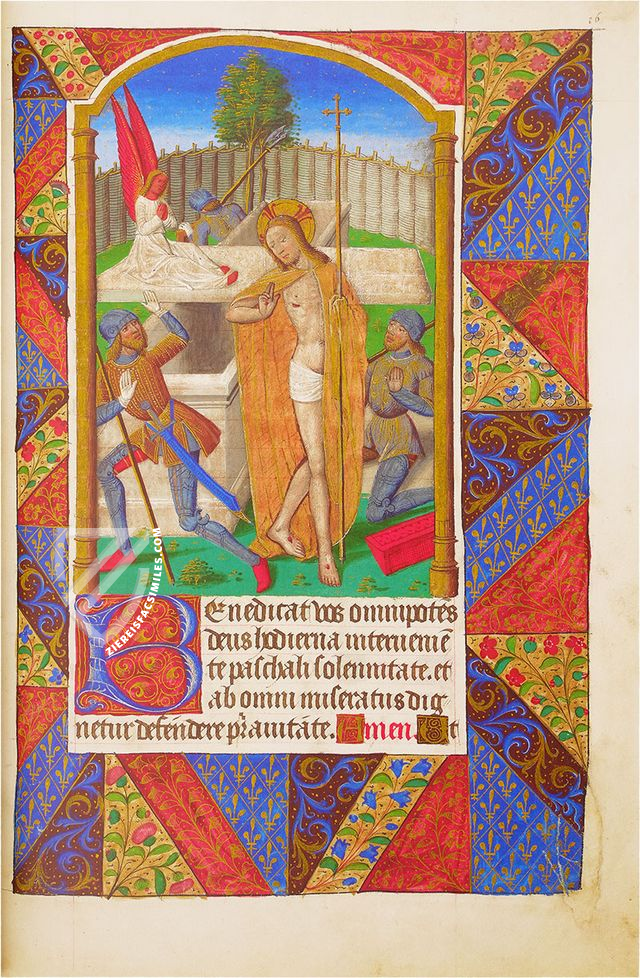 Benedicat vos omnipotes
deus hodierna interueniē
te paschali solennitate. et
ab omni miseratus dig
netur defendere prauitate. Amen. Et
ZIEREISFACSIMILES.COM